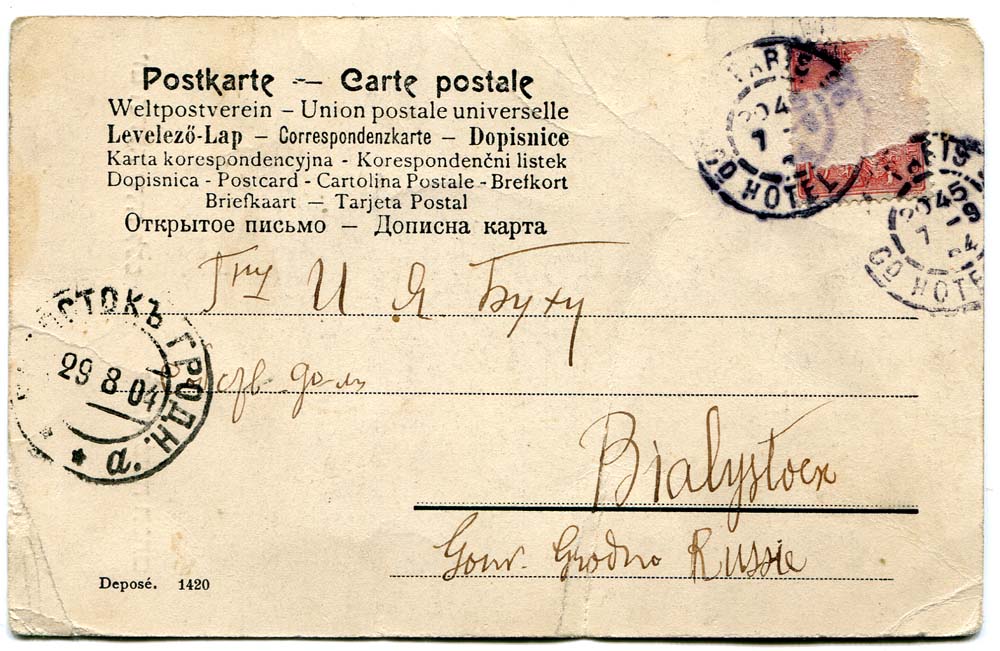 Postkarte — Carte postale
Weltpostverein – Union postale universelle
Levelező-Lap – Correspondenzkarte – Dopisnice
Karta korespondencyjna - Korespondenčni listek
Dopisnica - Postcard - Cartolina Postale - Brefkort
Briefkaart — Tarjeta Postal
Открытое письмо — Дописна карта
PARIS
20 45
7
GD HOTEL
PARIS
20 45
7 - 9
04
GD HOTEL
Гну И Я Буху
СТОКЪ ГРОДН.
29 8 04
а.
Bialystock
Gouv. Grodno Russie
Deposé. 1420